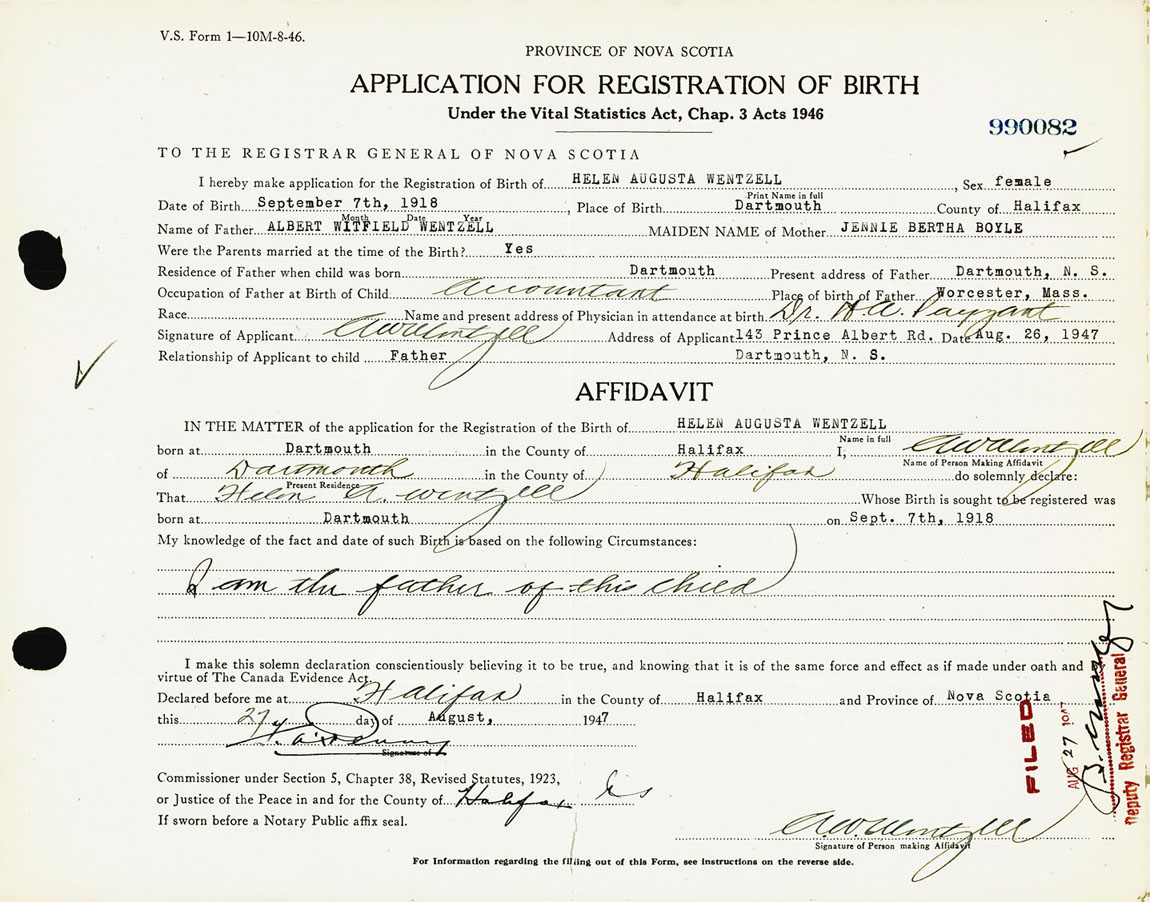 V.S. Form 1—10M-8-46.
PROVINCE OF NOVA SCOTIA
APPLICATION FOR REGISTRATION OF BIRTH
Under the Vital Statistics Act, Chap. 3 Acts 1946
990082
TO THE REGISTRAR GENERAL OF NOVA SCOTIA
I hereby make application for the Registration of Birth of HELEN AUGUSTA WENTZELL, Sex female
Print Name in full
Date of Birth September 7th, 1918, Place of Birth Dartmouth County of Halifax
Month Date Year
Name of Father ALBERT WITFIELD WENTZELL MAIDEN NAME of Mother JENNIE BERTHA BOYLE
Were the Parents married at the time of the Birth? Yes
Residence of Father when child was born Dartmouth Present address of Father Dartmouth, N. S.
Occupation of Father at Birth of Child Accountant Place of birth of Father Worcester, Mass.
Race Name and present address of Physician in attendance at birth Dr. H. A. Payzant
Signature of Applicant AWWentzell Address of Applicant 143 Prince Albert Rd. Date Aug. 26, 1947
Relationship of Applicant to child Father Dartmouth, N. S.
AFFIDAVIT
IN THE MATTER of the application for the Registration of Birth of HELEN AUGUSTA WENTZELL
Name in full
born at Dartmouth in the County of Halifax I, AWWentzell
Name of Person Making Affidavit
of Dartmouth in the County of Halifax do solemnly declare:
Present Residence
That Helen A. Wentzell Whose Birth is sought to be registered was
born at Dartmouth on Sept. 7th, 1918
My knowledge of the fact and date of such Birth is based on the following Circumstances:
I am the father of this child
I make this solemn declaration conscientiously believing it to be true, and knowing that it is of the same force and effect as if made under oath and
virtue of The Canada Evidence Act.
Declared before me at Halifax in the County of Halifax and Province of Nova Scotia
this 27 day of August, 1947
Signature of
Commissioner under Section 5, Chapter 38, Revised Statutes, 1923,
or Justice of the Peace in and for the County of Halifax
If sworn before a Notary Public affix seal.
A.W.Wentzell
Signature of Person making Affidavit
For Information regarding the filling out of this Form, see instructions on the reverse side.
FILED
AUG 27 1947
Deputy Registrar General